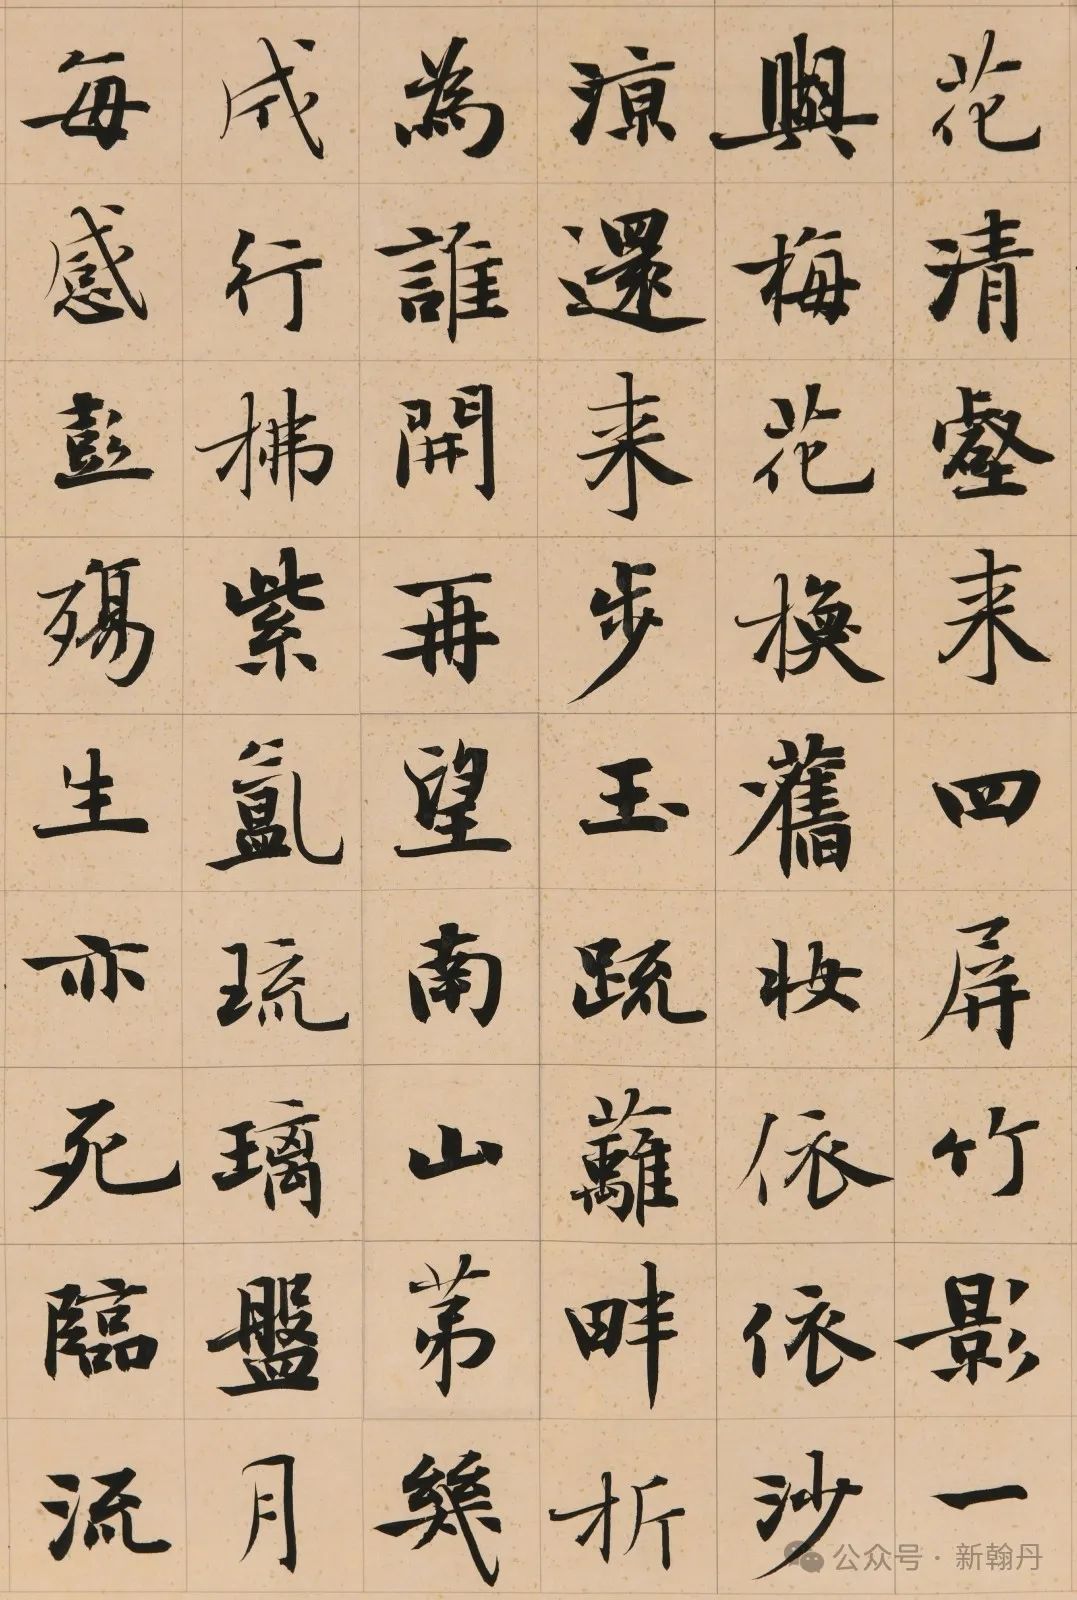 花清壑来四屏竹影一
與梅花換舊妝依依沙
涼還来步玉疏蘺畔折
為誰開再望南山苐幾
成行拂紫氬琉璃盤月
每感彭殤生亦死臨流
公众号·新翰丹